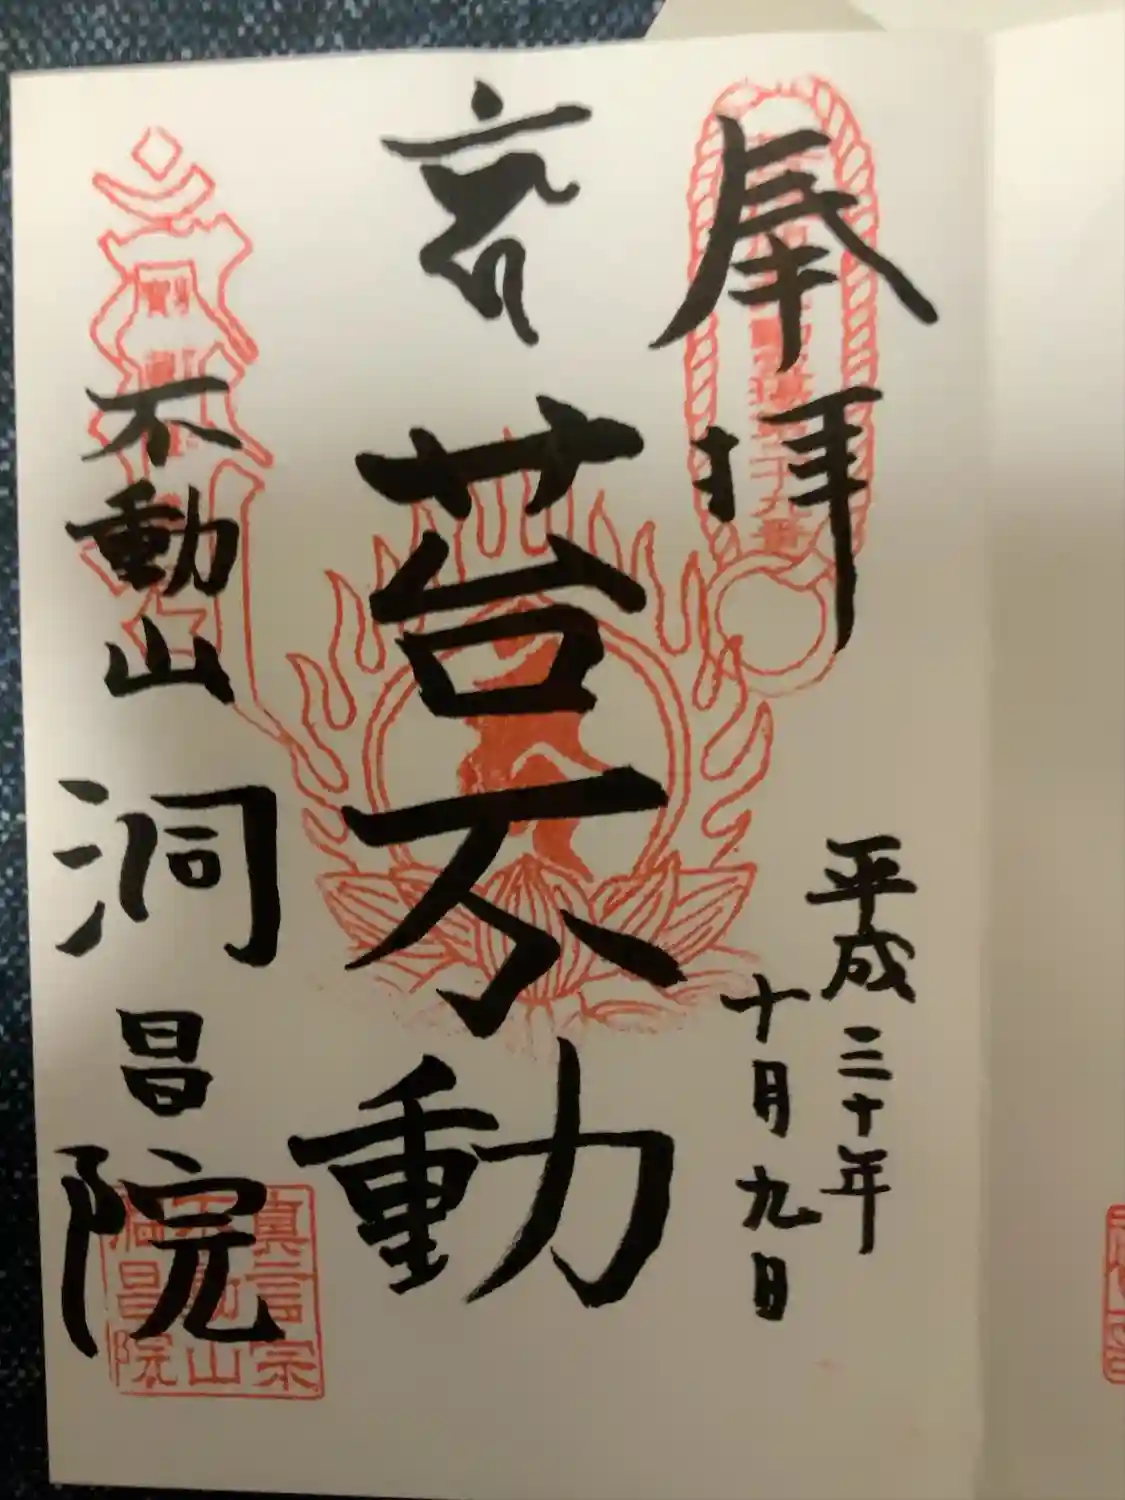 奉拝
平成三十年
十月九日
苔不動
不動山
洞昌院
真言宗
不動山
洞昌院